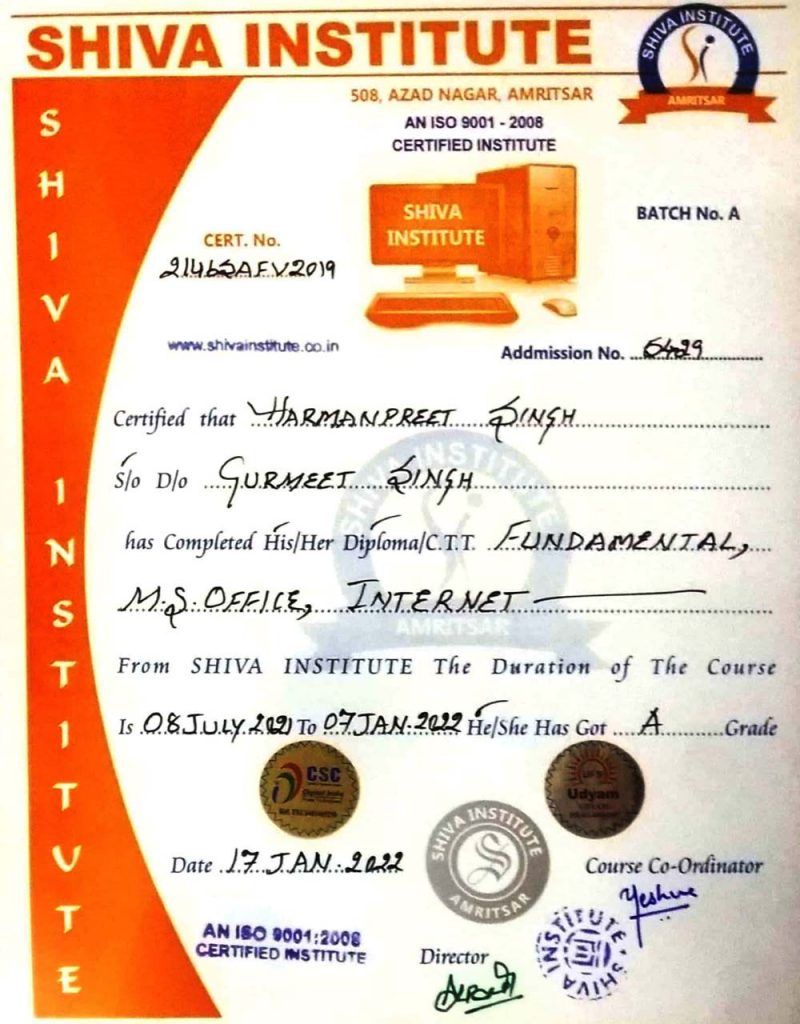 SHIVA INSTITUTE
SHIVA INSTITUTE
AMRITSAR
508, AZAD NAGAR, AMRITSAR
AN ISO 9001 - 2008
CERTIFIED INSTITUTE
SHIVA INSTITUTE
SHIVA
INSTITUTE
BATCH No. A
CERT. No.
2146SAFV2019
www.shivainstitute.co.in
Addmission No. 6429
Certified that HARMANPREET SINGH
S/o D/o GURMEET SINGH
has Completed His/Her Diploma/C.T.T. FUNDAMENTAL,
M.S. OFFICE, INTERNET
SHIVA INSTITUTE
AMRITSAR
From SHIVA INSTITUTE The Duration of The Course
Is 08 JULY 2021 To 07 JAN. 2022 He/She Has Got A Grade
CSC
Digital India
Udyam
SHIVA INSTITUTE
S
AMRITSAR
Date 17 JAN. 2022
Course Co-Ordinator
AN ISO 9001:2008
CERTIFIED INSTITUTE
Director
SHIVA INSTITUTE